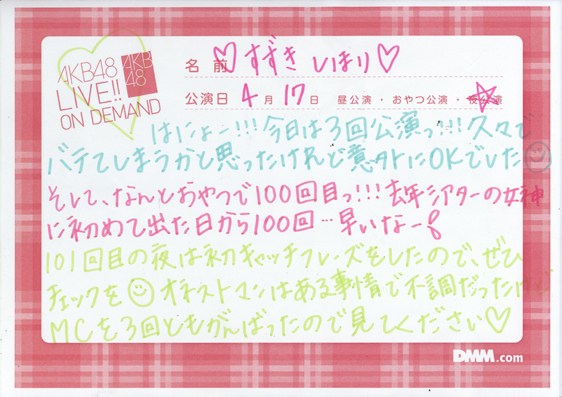 AKB48
LIVE!!
ON DEMAND
AKB
48
名前 ♡すずき しほり♡
公演日 4月17日 昼公演・おやつ公演・夜公演
はにょー!!!今日は3回公演っ!!!久々で
バテてしまうかと思ったけれど意外にOKでした☺
そして、なんとおやつで100回目っ!!!去年シアターの女神
に初めて出た日から100回…早いなー
101回目の夜は初キャッチフレーズをしたので、ぜひ
チェックを☺オネストマンはある事情で不調だった
MCを3回ともがんばったので見てください♡
DMM.com